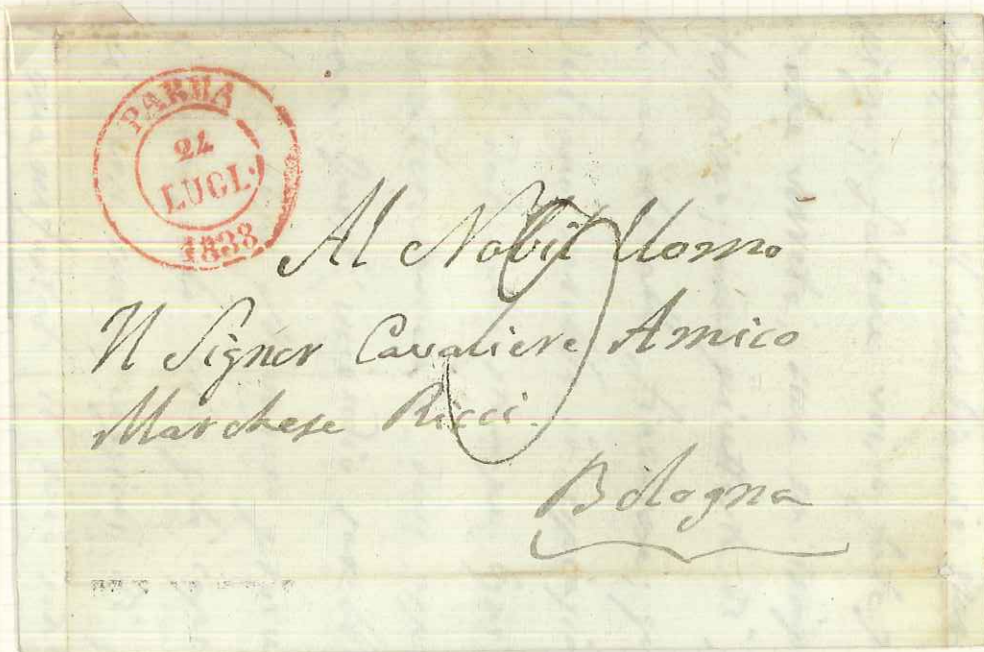 PARMA
24
LUGL.
1838
Al Nobil Uomo
Il Signor Cavaliere Amico
Marchese Ricci.
Bologna